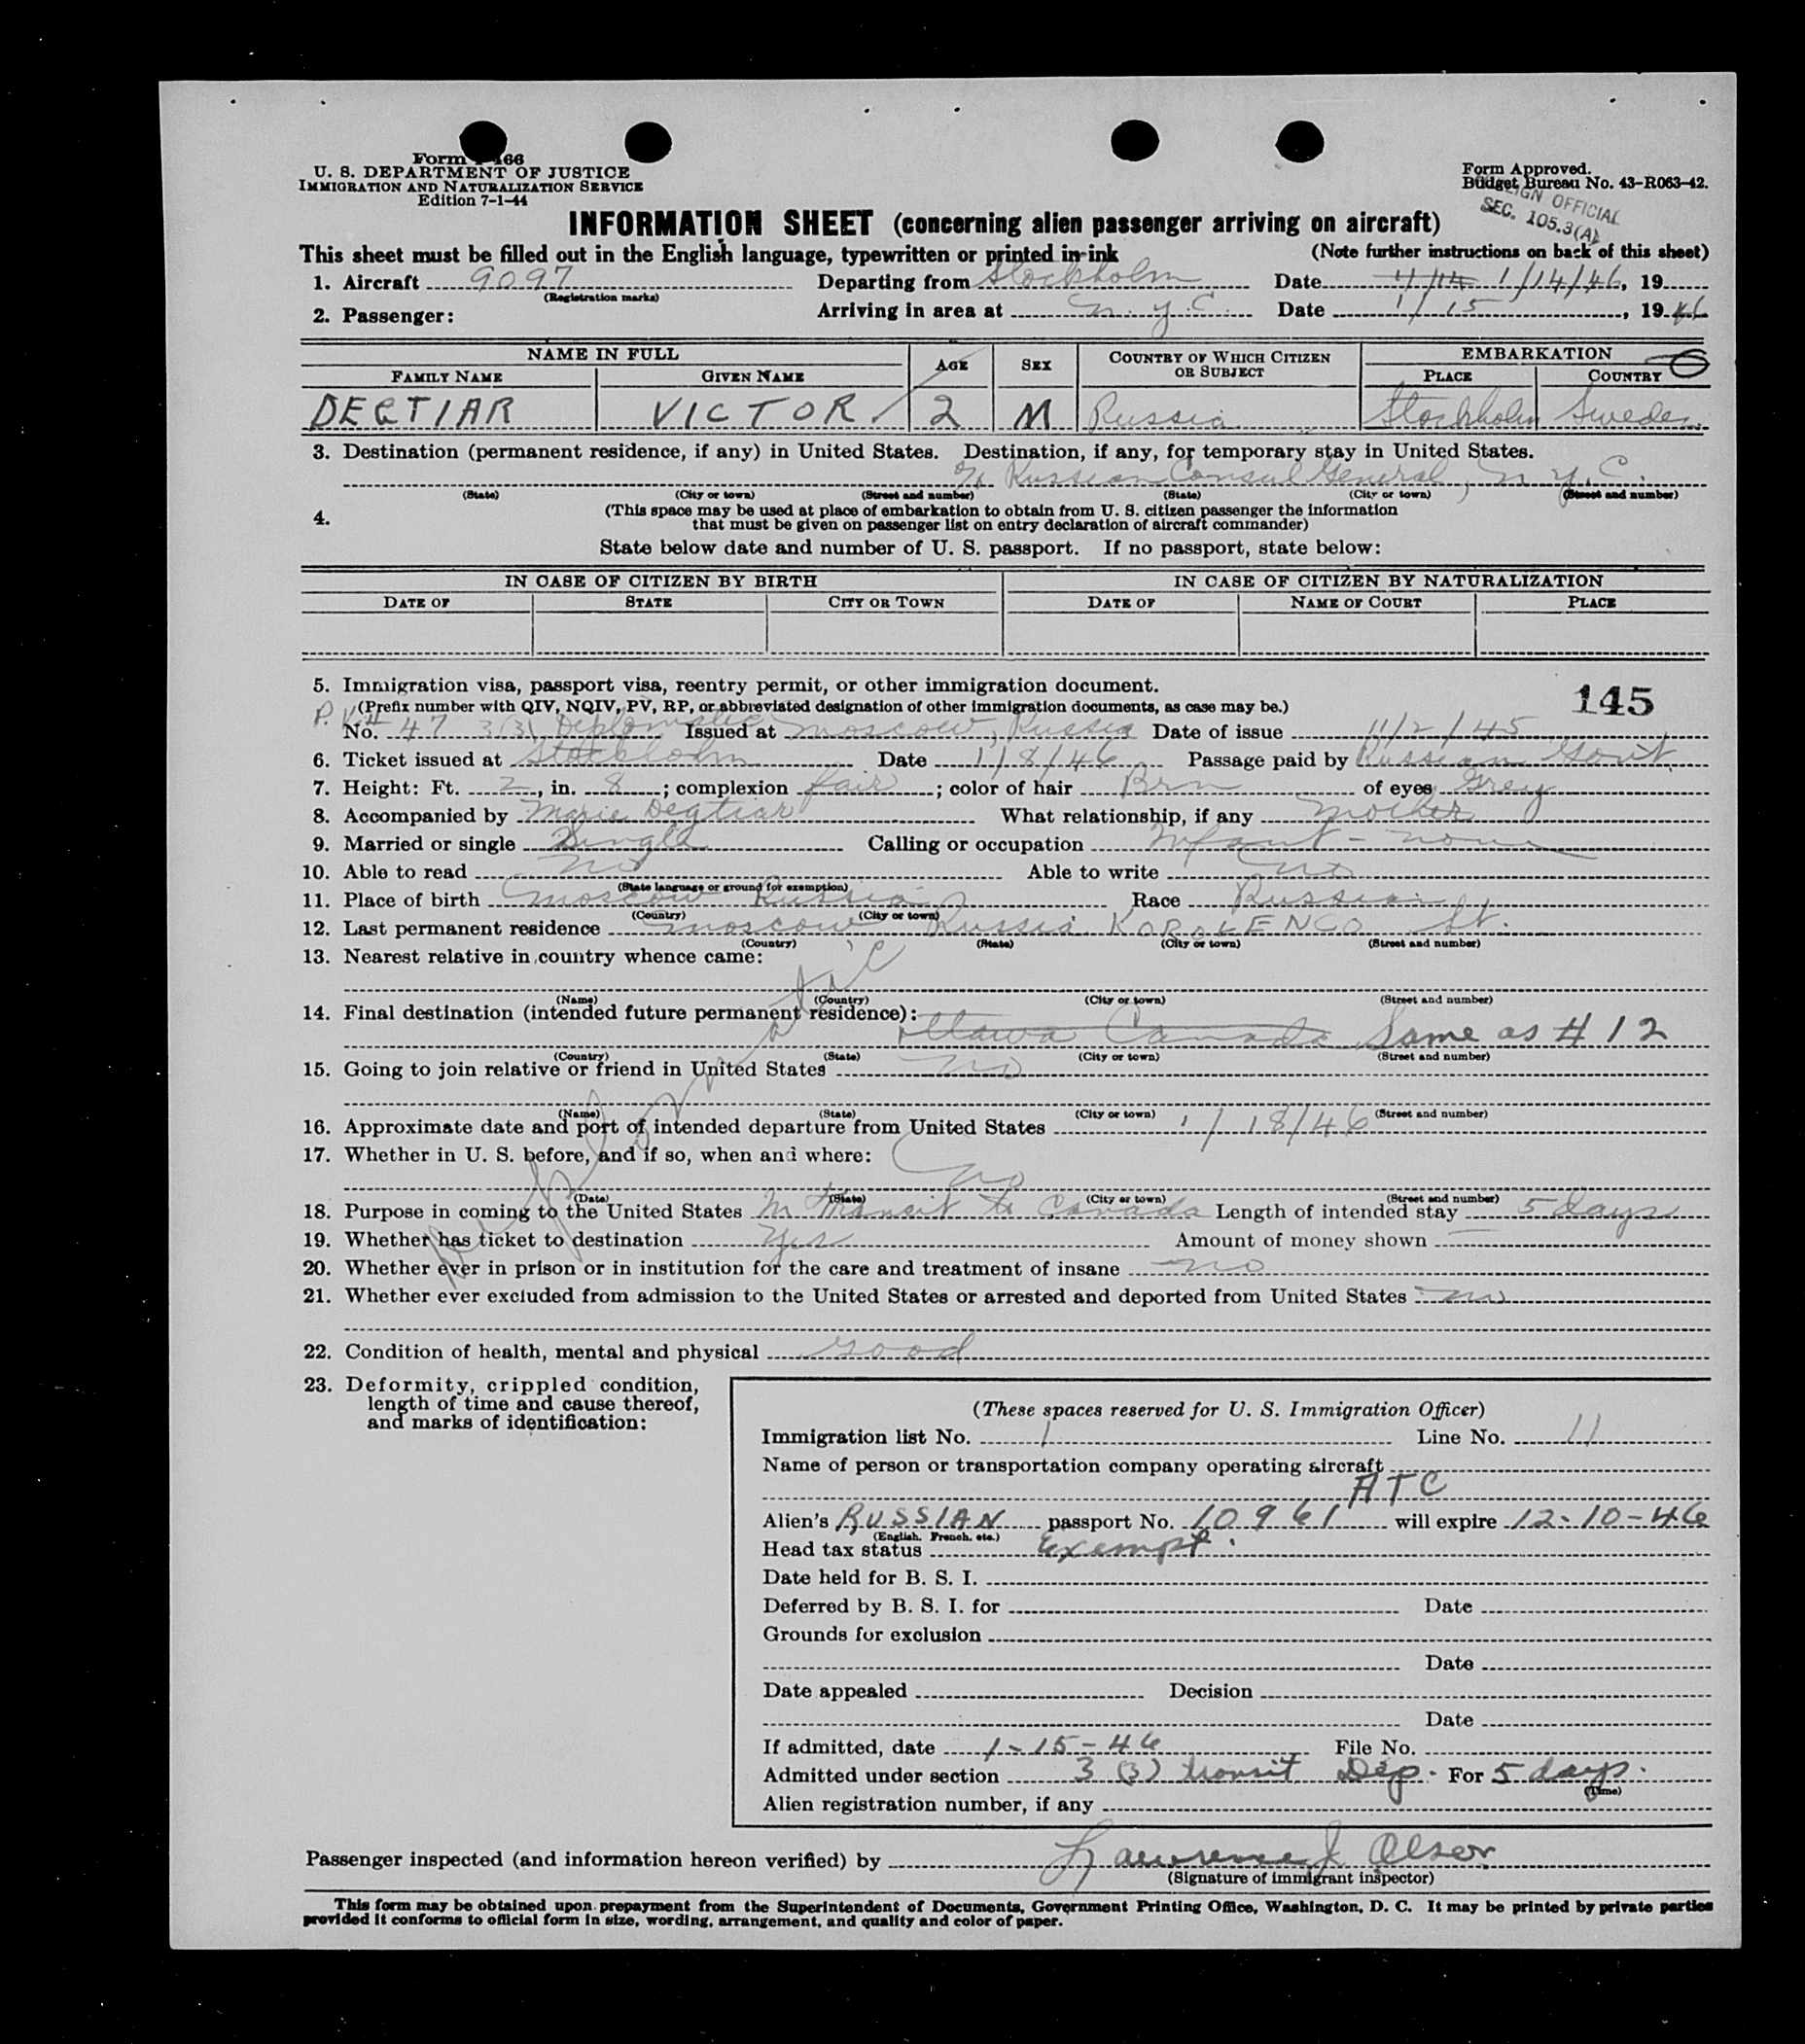 Form I-466
U. S. DEPARTMENT OF JUSTICE
IMMIGRATION AND NATURALIZATION SERVICE
Edition 7-1-44
Form Approved.
Budget Bureau No. 43-R063-42.
OFFICIAL
SEC. 105.3(A)
INFORMATION SHEET (concerning alien passenger arriving on aircraft)
This sheet must be filled out in the English language, typewritten or printed in ink (Note further instructions on back of this sheet)
1. Aircraft 9097 Departing from Stockholm Date 1/14/46, 19
(Registration marks)
2. Passenger: Arriving in area at N.Y.C. Date 1/15, 1946
NAME IN FULL AGE SEX COUNTRY OF WHICH CITIZEN OR SUBJECT EMBARKATION
FAMILY NAME GIVEN NAME PLACE COUNTRY
DEGTIAR VICTOR 2 M Russia Stockholm Sweden
3. Destination (permanent residence, if any) in United States. Destination, if any, for temporary stay in United States.
% Russian Consul General, N.Y.C.
(State) (City or town) (Street and number) (State) (City or town) (Street and number)
4. (This space may be used at place of embarkation to obtain from U. S. citizen passenger the information
that must be given on passenger list on entry declaration of aircraft commander)
State below date and number of U. S. passport. If no passport, state below:
IN CASE OF CITIZEN BY BIRTH IN CASE OF CITIZEN BY NATURALIZATION
DATE OF STATE CITY OR TOWN DATE OF NAME OF COURT PLACE
5. Immigration visa, passport visa, reentry permit, or other immigration document.
(Prefix number with QIV, NQIV, PV, RP, or abbreviated designation of other immigration documents, as case may be.) 145
P.V. # No. 47 3(3) Diplomatic Issued at Moscow, Russia Date of issue 11/2/45
6. Ticket issued at Stockholm Date 1/8/46 Passage paid by Russian Gov't
7. Height: Ft. 2, in. 8; complexion fair; color of hair Brn of eyes Grey
8. Accompanied by Marie Degtiar What relationship, if any Mother
9. Married or single Single Calling or occupation Infant - none
10. Able to read No Able to write no
(State language or ground for exemption)
11. Place of birth Moscow Russia Race Russian
(Country) (City or town)
12. Last permanent residence Moscow Russia KOROLENCO St.
(Country) (State) (City or town) (Street and number)
13. Nearest relative in country whence came:
(Name) (Country) (City or town) (Street and number)
14. Final destination (intended future permanent residence):
Ottawa Canada Same as #12
(Country) (State) (City or town) (Street and number)
15. Going to join relative or friend in United States no
(Name) (State) (City or town) (Street and number)
16. Approximate date and port of intended departure from United States 1/18/46
17. Whether in U. S. before, and if so, when and where:
no
(Date) (State) (City or town) (Street and number)
18. Purpose in coming to the United States In transit to Canada Length of intended stay 5 days
19. Whether has ticket to destination Yes Amount of money shown —
20. Whether ever in prison or in institution for the care and treatment of insane no
21. Whether ever excluded from admission to the United States or arrested and deported from United States no
22. Condition of health, mental and physical good
Diplomatic
23. Deformity, crippled condition,
length of time and cause thereof,
and marks of identification:
(These spaces reserved for U. S. Immigration Officer)
Immigration list No. 1 Line No. 11
Name of person or transportation company operating aircraft
ATC
Alien's RUSSIAN passport No. 10961 will expire 12-10-46
(English, French, etc.)
Head tax status Exempt.
Date held for B. S. I.
Deferred by B. S. I. for Date
Grounds for exclusion
Date
Date appealed Decision
Date
If admitted, date 1-15-46 File No.
Admitted under section 3 (3) transit Dip. For 5 days.
(Time)
Alien registration number, if any
Passenger inspected (and information hereon verified) by Lawrence J Olson
(Signature of immigrant inspector)
This form may be obtained upon prepayment from the Superintendent of Documents, Government Printing Office, Washington, D. C. It may be printed by private parties
provided it conforms to official form in size, wording, arrangement, and quality and color of paper.